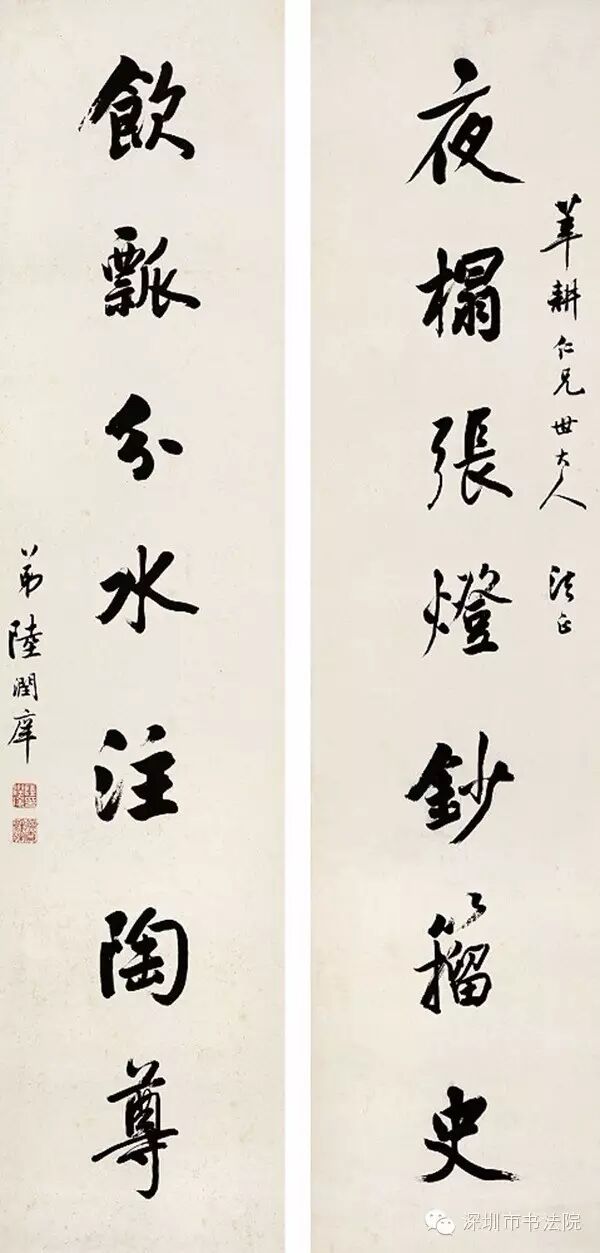 耕仁兄世大人 法正
夜榻張燈鈔籒史
飲瓢分水注陶尊
弟陸潤庠
深圳市书法院